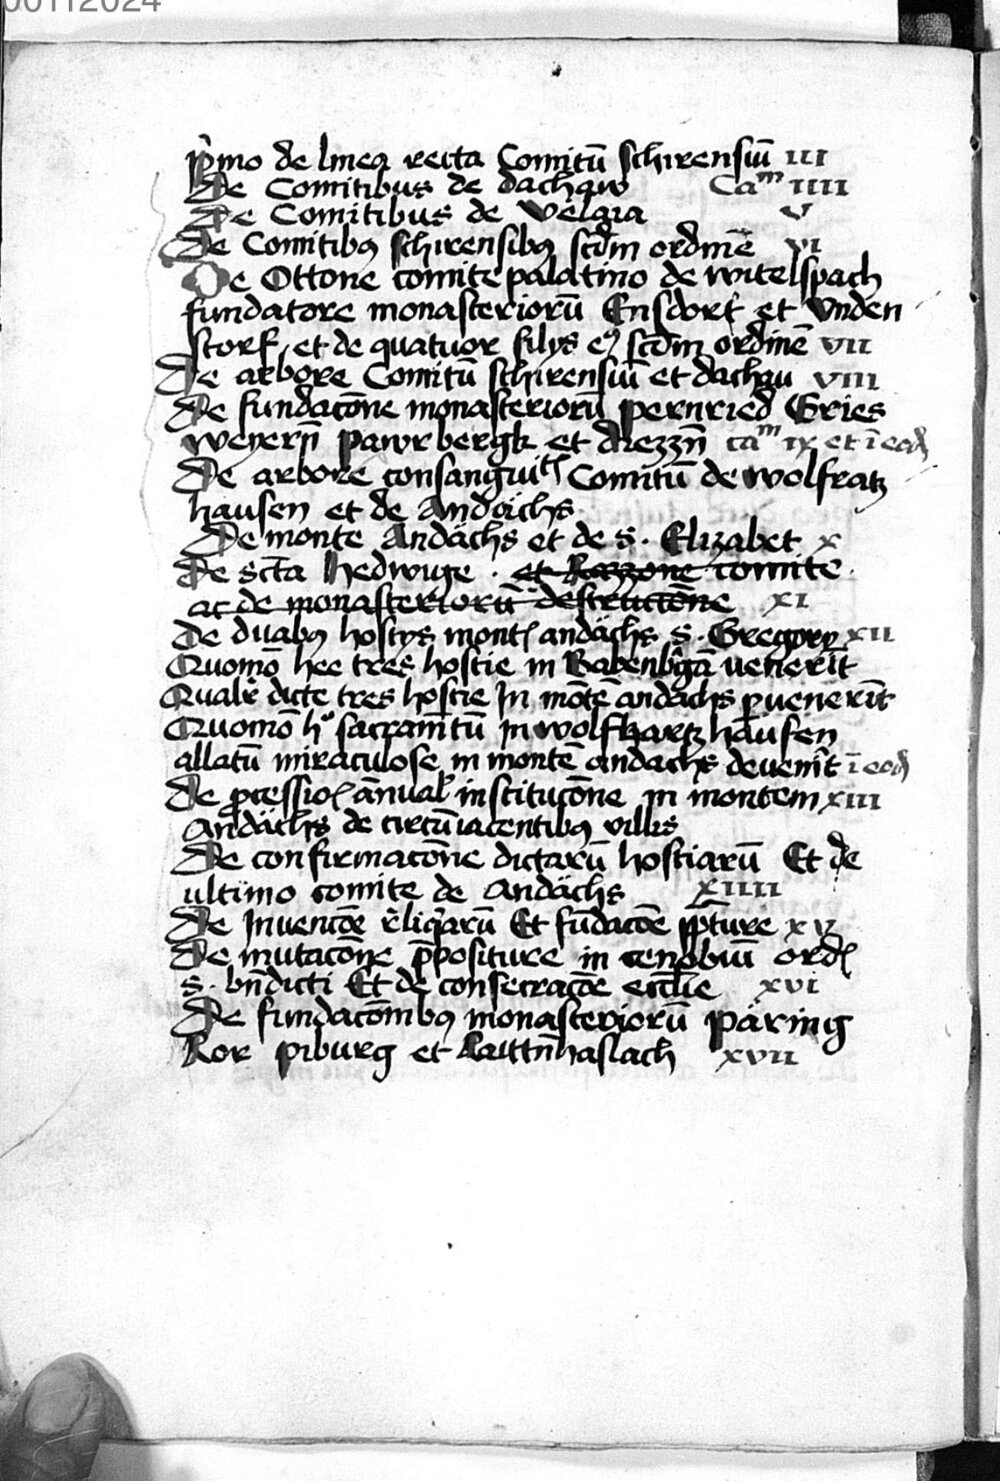 00112024
p̉mo de linea recta Comitū schirensiū III
De Comitibus de dachaw Caᵐ IIII
De Comitibus de velaia V
De Comitibꝰ schirensibꝰ scd̄m ordinē VI
De Ottone comite palatino de witelspach
fundatore monasteriorū Ensdorf et Vnden
storf, et de quatuor filijs eꝰ scd̄m ordinē VII
De arbore Comitū schirensiū et dachau VIII
De fundacōne monasteriorū pernried Gries
weyern̄ pawrbergk et diezzn̄ caᵐ IX et ī eod
De arbore consanguitꝭ Comitū de wolfratz
hausen et de Andöchs
De monte Andächs et de s. Elizabet X
De scta Hedwige . et Razzone comite
ac de monasteriorū destructōne XI
De duabꝰ hostijs montꝭ andächs s. Gregorij XII
Quomō hee tres hostie in Babenb̉gā venerīt
Qualit̉ dicte tres hostie In mōtē andächs ꝑuenerīt
Quomō hᵒ sacramētū in wolfhartzhausen
allatū miraculose in montē andächs deuenīt ī eod
De ꝓcessioꝭ ānual̉ institucōne in montem XIII
Andächs de circūiacentibꝰ villis
De confirmacōne dictarū hostiarū Et de
ultimo comite de Andächs XIIII
De Invencōe r̉liq̉arū Et fūdacōe ꝓp̄ture XV
De mutacōne p̄positure in cenobiū ordꝭ
s. bn̄dicti Et de consecracōe ecclīe XVI
De fundacōnibꝰ monasteriorū päring
Ror piburg et Raittn̄haslach XVII